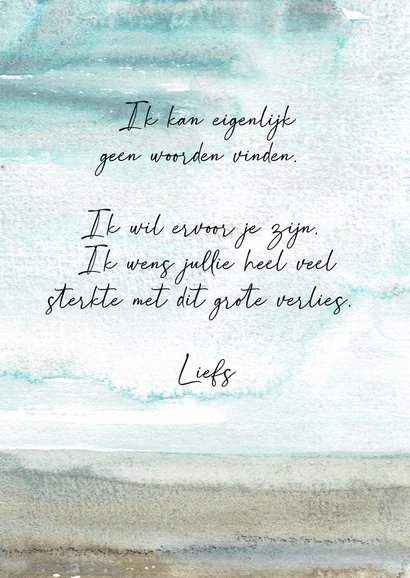 Ik kan eigenlijk
geen woorden vinden.
Ik wil ervoor je zijn.
Ik wens jullie heel veel
sterkte met dit grote verlies.
Liefs